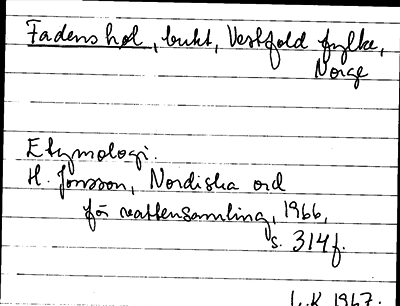 Fadenshol, bukt, Vestfold fylke,
Norge
Etymologi.
H. Jonsson, Nordiska ord
för vattensamling, 1966,
s. 314f.
L.K 1967.